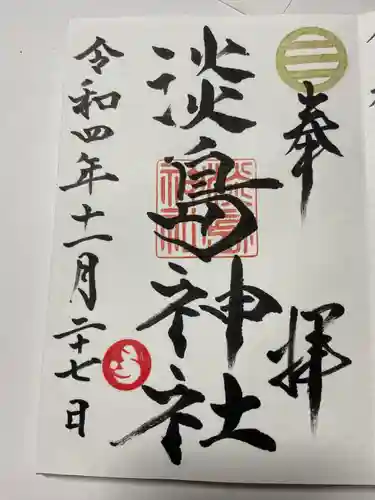 奉拝
淡嶋神社
令和四年十一月二十七日